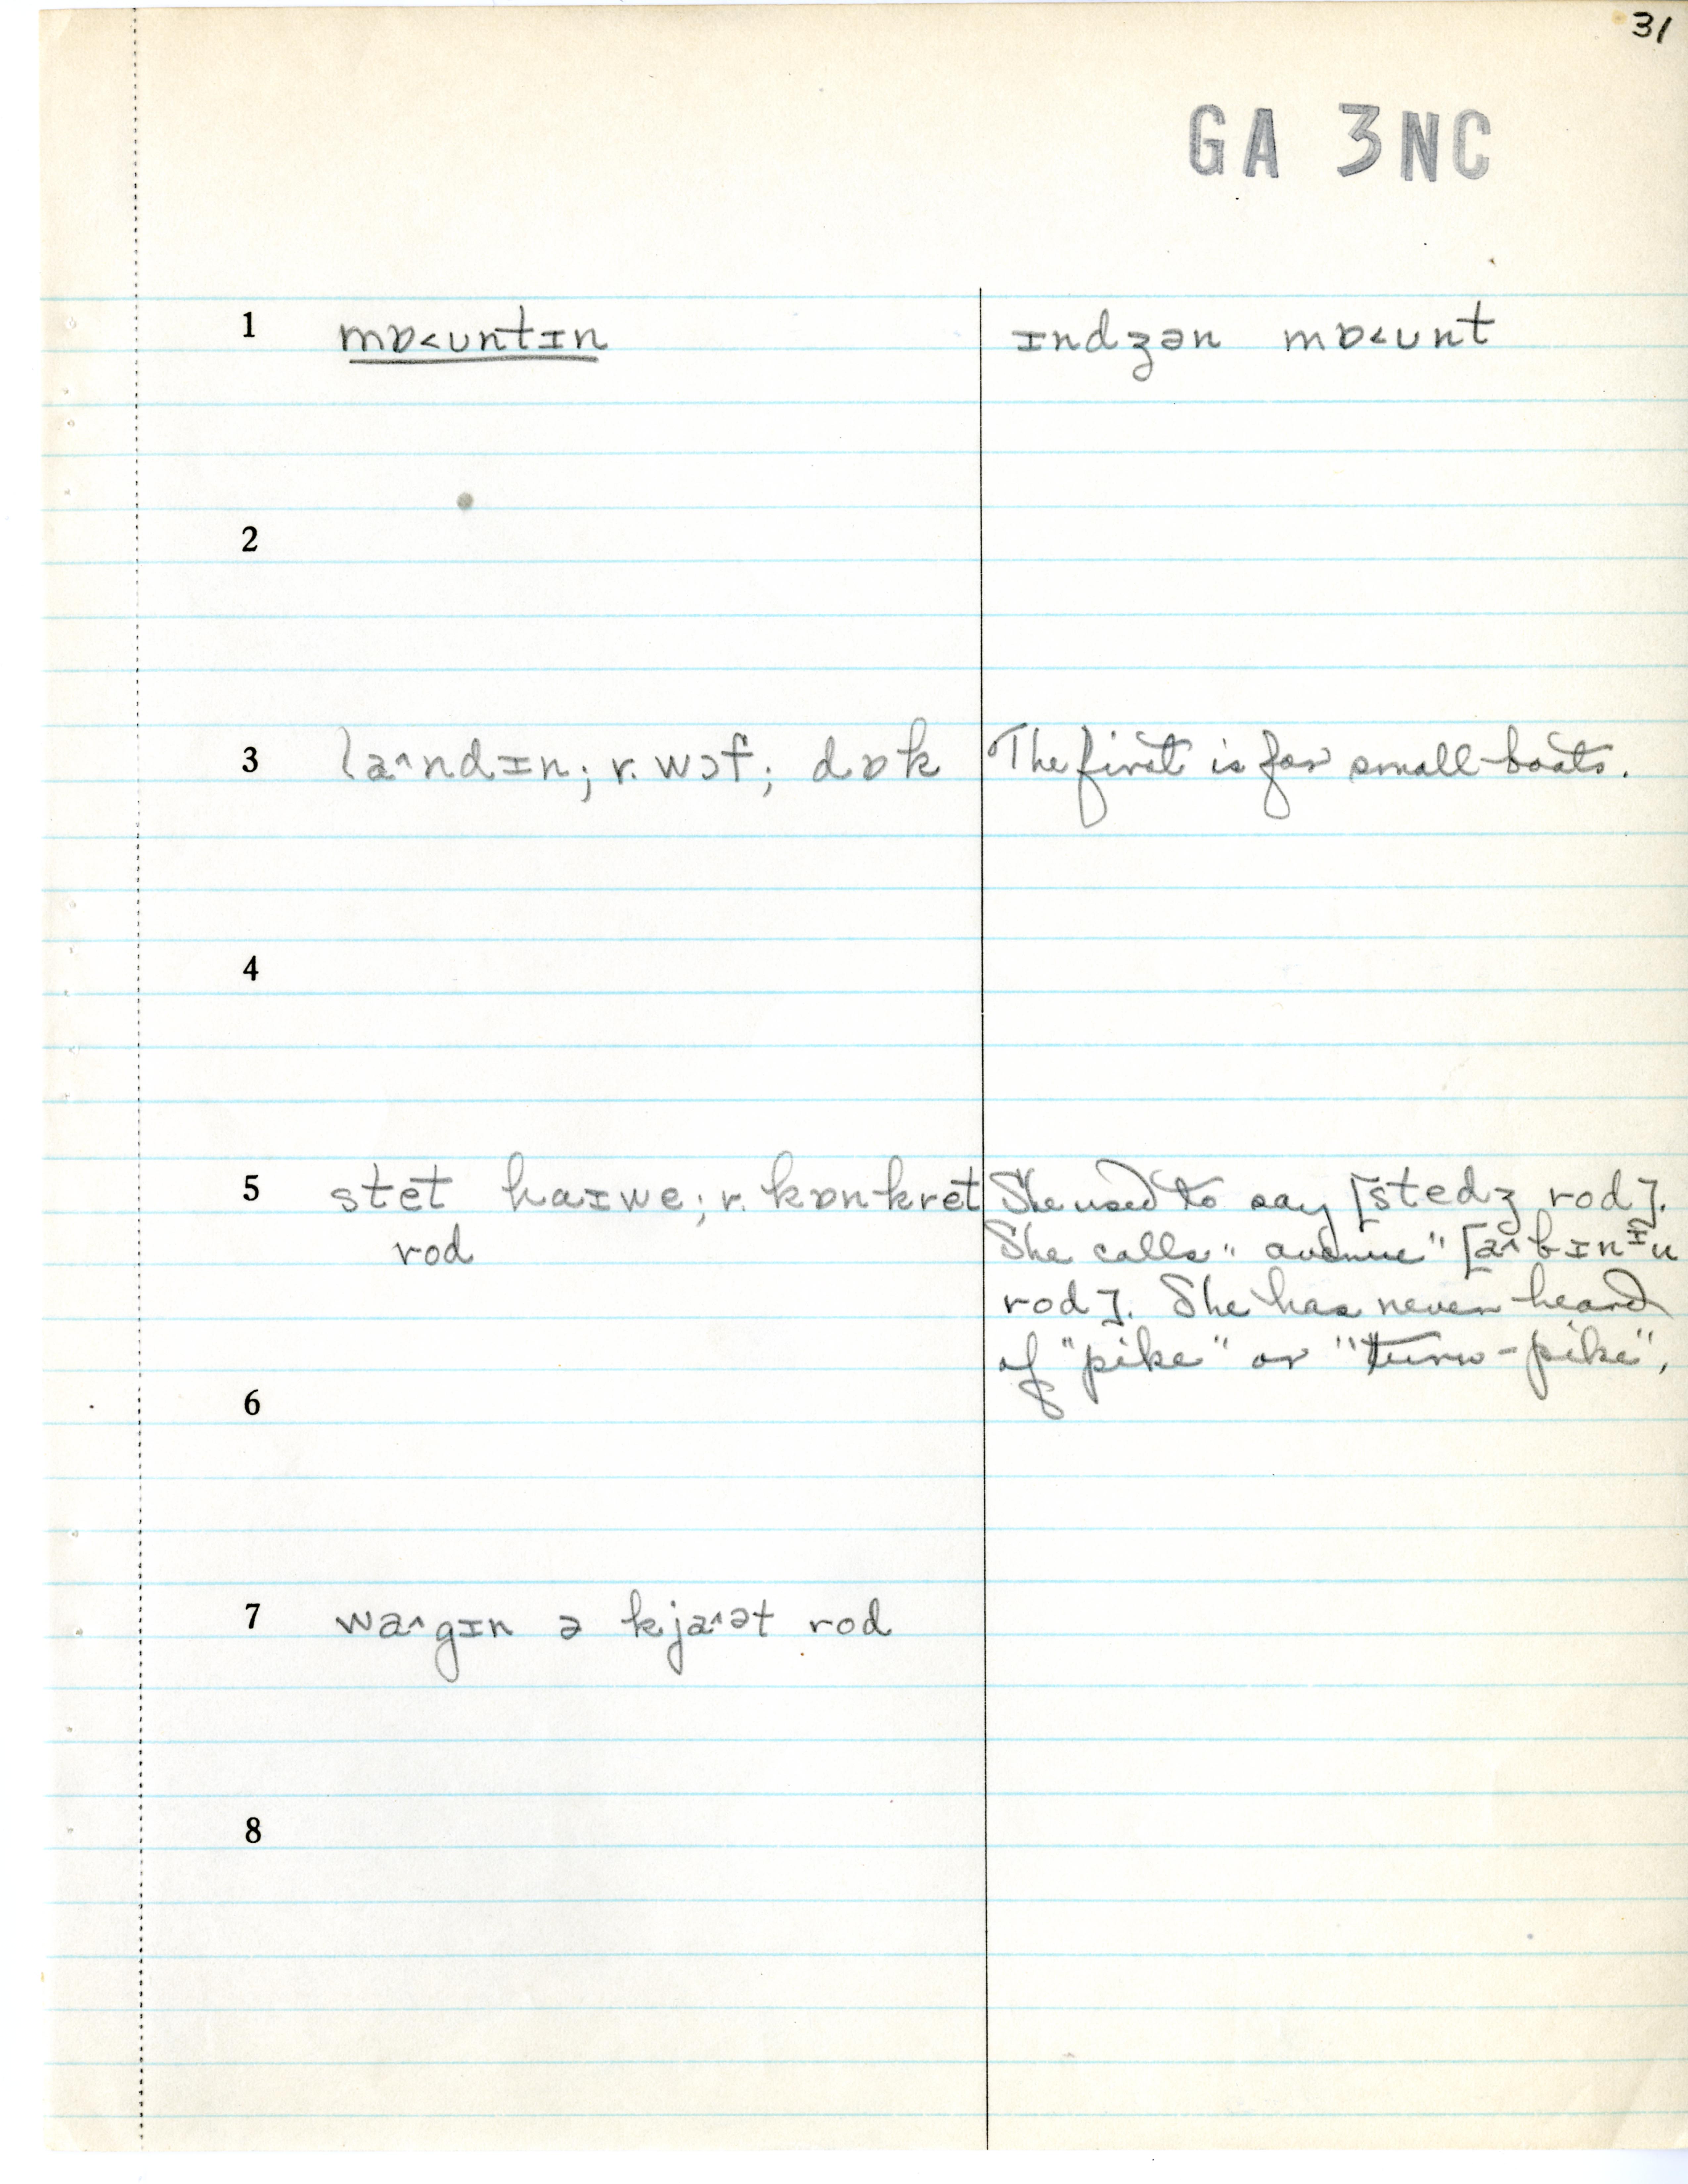 31
GA 3NC
1 mɒ<ʊntɪn ɪndʒən mɒ<ʊnt
2
3 la^ndɪn; r. wɔf; dɒk The first is for small boats.
4
5 stet haɪwe; r. kɒnkret She used to say [stedʒ rod].
rod She calls "avenue" [a^bɪnᶦu
rod]. She has never heard
of "pike" or "turn-pike".
6
7 wa^gɪn ə kja^ət rod
8